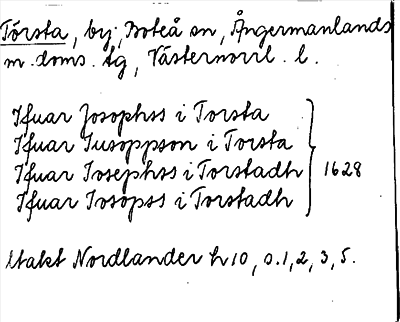 Torsta, by, Boteå sn, Ångermanlands
m. doms. tg, Västernorrl. l.
Ifuar Josophss i Torsta
Ifuar Iusoppson i Torsta
Ifuar Iosephss i Torstadh
Ifuar Iosopss i Torstadh
1628
Utakt Nordlander h 10, s. 1, 2, 3, 5.